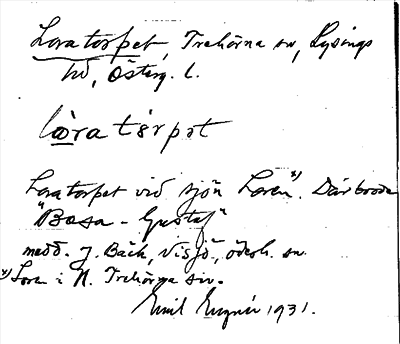 Loratorpet, Trehörna sn, Lysings
hd, Österg. l.
lòratòrpət
Loratorpet vid sjön Loren x). Där bodde
"Basa-Gustaf"
medd. J. Bäck, Visjö, Ödesh. sn.
x) Loren i N. Trehörna sn.
Emil 1931.